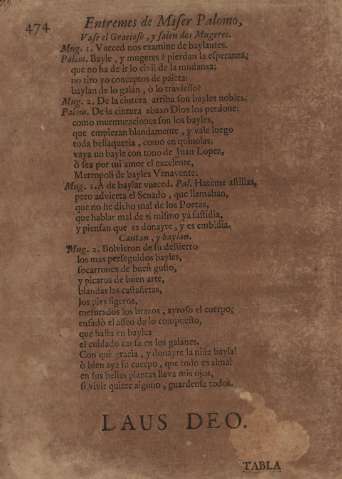 474
Entremes de Miser Palomo,
Vase el Gracioso, y salen dos Mugeres.
Mug. 1. Vuesced nos examine de baylantes.
Palom. Bayle, y mugeres? pierdan la esperanza;
que no ha de ir lo civil de la mudanza;
no tiro yo conceptos de paleta:
baylan de lo galàn, ò lo travieso?
Mug. 2. De la cintura arriba son bayles nobles.
Palom. De la cintura abaxo Dios los perdone:
como murmuraciones son los bayles,
que empiezan blandamente, y vale luego
toda bellaqueria, como en quinolas;
vaya un bayle con tono de Juan Lopez,
ò sea por mi amor el excelente,
Metropoli de bayles Venavente.
Mug. 1. A de baylar vuesced. Pal. Haranme astillas,
pero advierta el Senado, que llamaban,
que no he dicho mal de los Poetas,
que hablar mal de si mismo yà fastidia,
y piensan que es donayre, y es embidia.
Cantan, y baylan.
Mug. 2. Bolvieron de su destierro
los mas perseguidos bayles,
socarrones de buen gusto,
y picaros de buen arte,
blandas las castañetas,
los pies ligeros,
mesurados los brazos, ayroso el cuerpo;
enfadò el asseo de lo compuesto,
que hasta en bayles
el cuidado cansa en los galanes.
Con què gracia, y donayre la niña bayla!
ò bien aya su cuerpo, que todo es alma!
en sus bellas plantas lleva mis ojos,
si vivir quiere alguno, guardense todos.
LAUS DEO.
TABLA